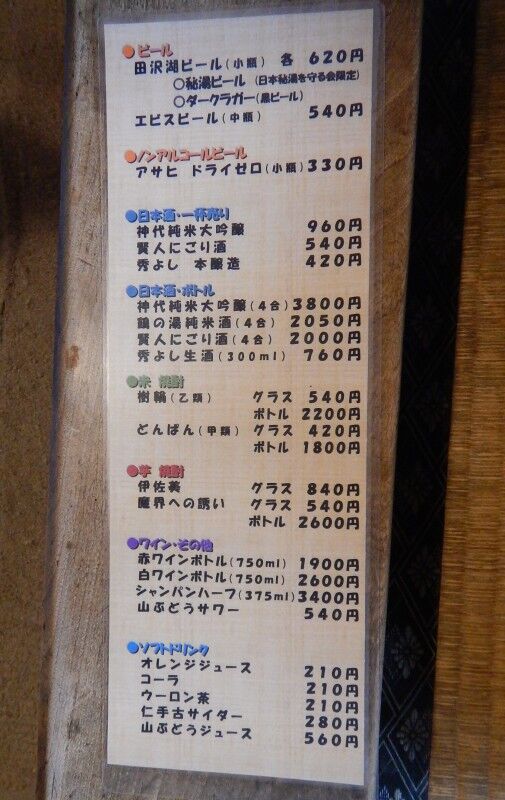 ●ビール
田沢湖ビール(小瓶) 各 620円
○秘湯ビール (日本秘湯を守る会限定)
○ダークラガー(黒ビール)
エビスビール(中瓶) 540円
●ノンアルコールビール
アサヒ ドライゼロ(小瓶) 330円
●日本酒・一杯売り
神代純米大吟醸 960円
賢人にごり酒 540円
秀よし 本醸造 420円
●日本酒・ボトル
神代純米大吟醸(4合) 3800円
鶴の湯純米酒(4合) 2050円
賢人にごり酒(4合) 2000円
秀よし生酒(300ml) 760円
●米 焼酎
樹輪(乙類) グラス 540円
ボトル 2200円
どんぱん(甲類) グラス 420円
ボトル 1800円
●芋 焼酎
伊佐美 グラス 840円
魔界への誘い グラス 540円
ボトル 2600円
●ワイン・その他
赤ワインボトル(750ml) 1900円
白ワインボトル(750ml) 2600円
シャンパンハーフ(375ml) 3400円
山ぶどうサワー 540円
●ソフトドリンク
オレンジジュース 210円
コーラ 210円
ウーロン茶 210円
仁手古サイダー 280円
山ぶどうジュース 560円